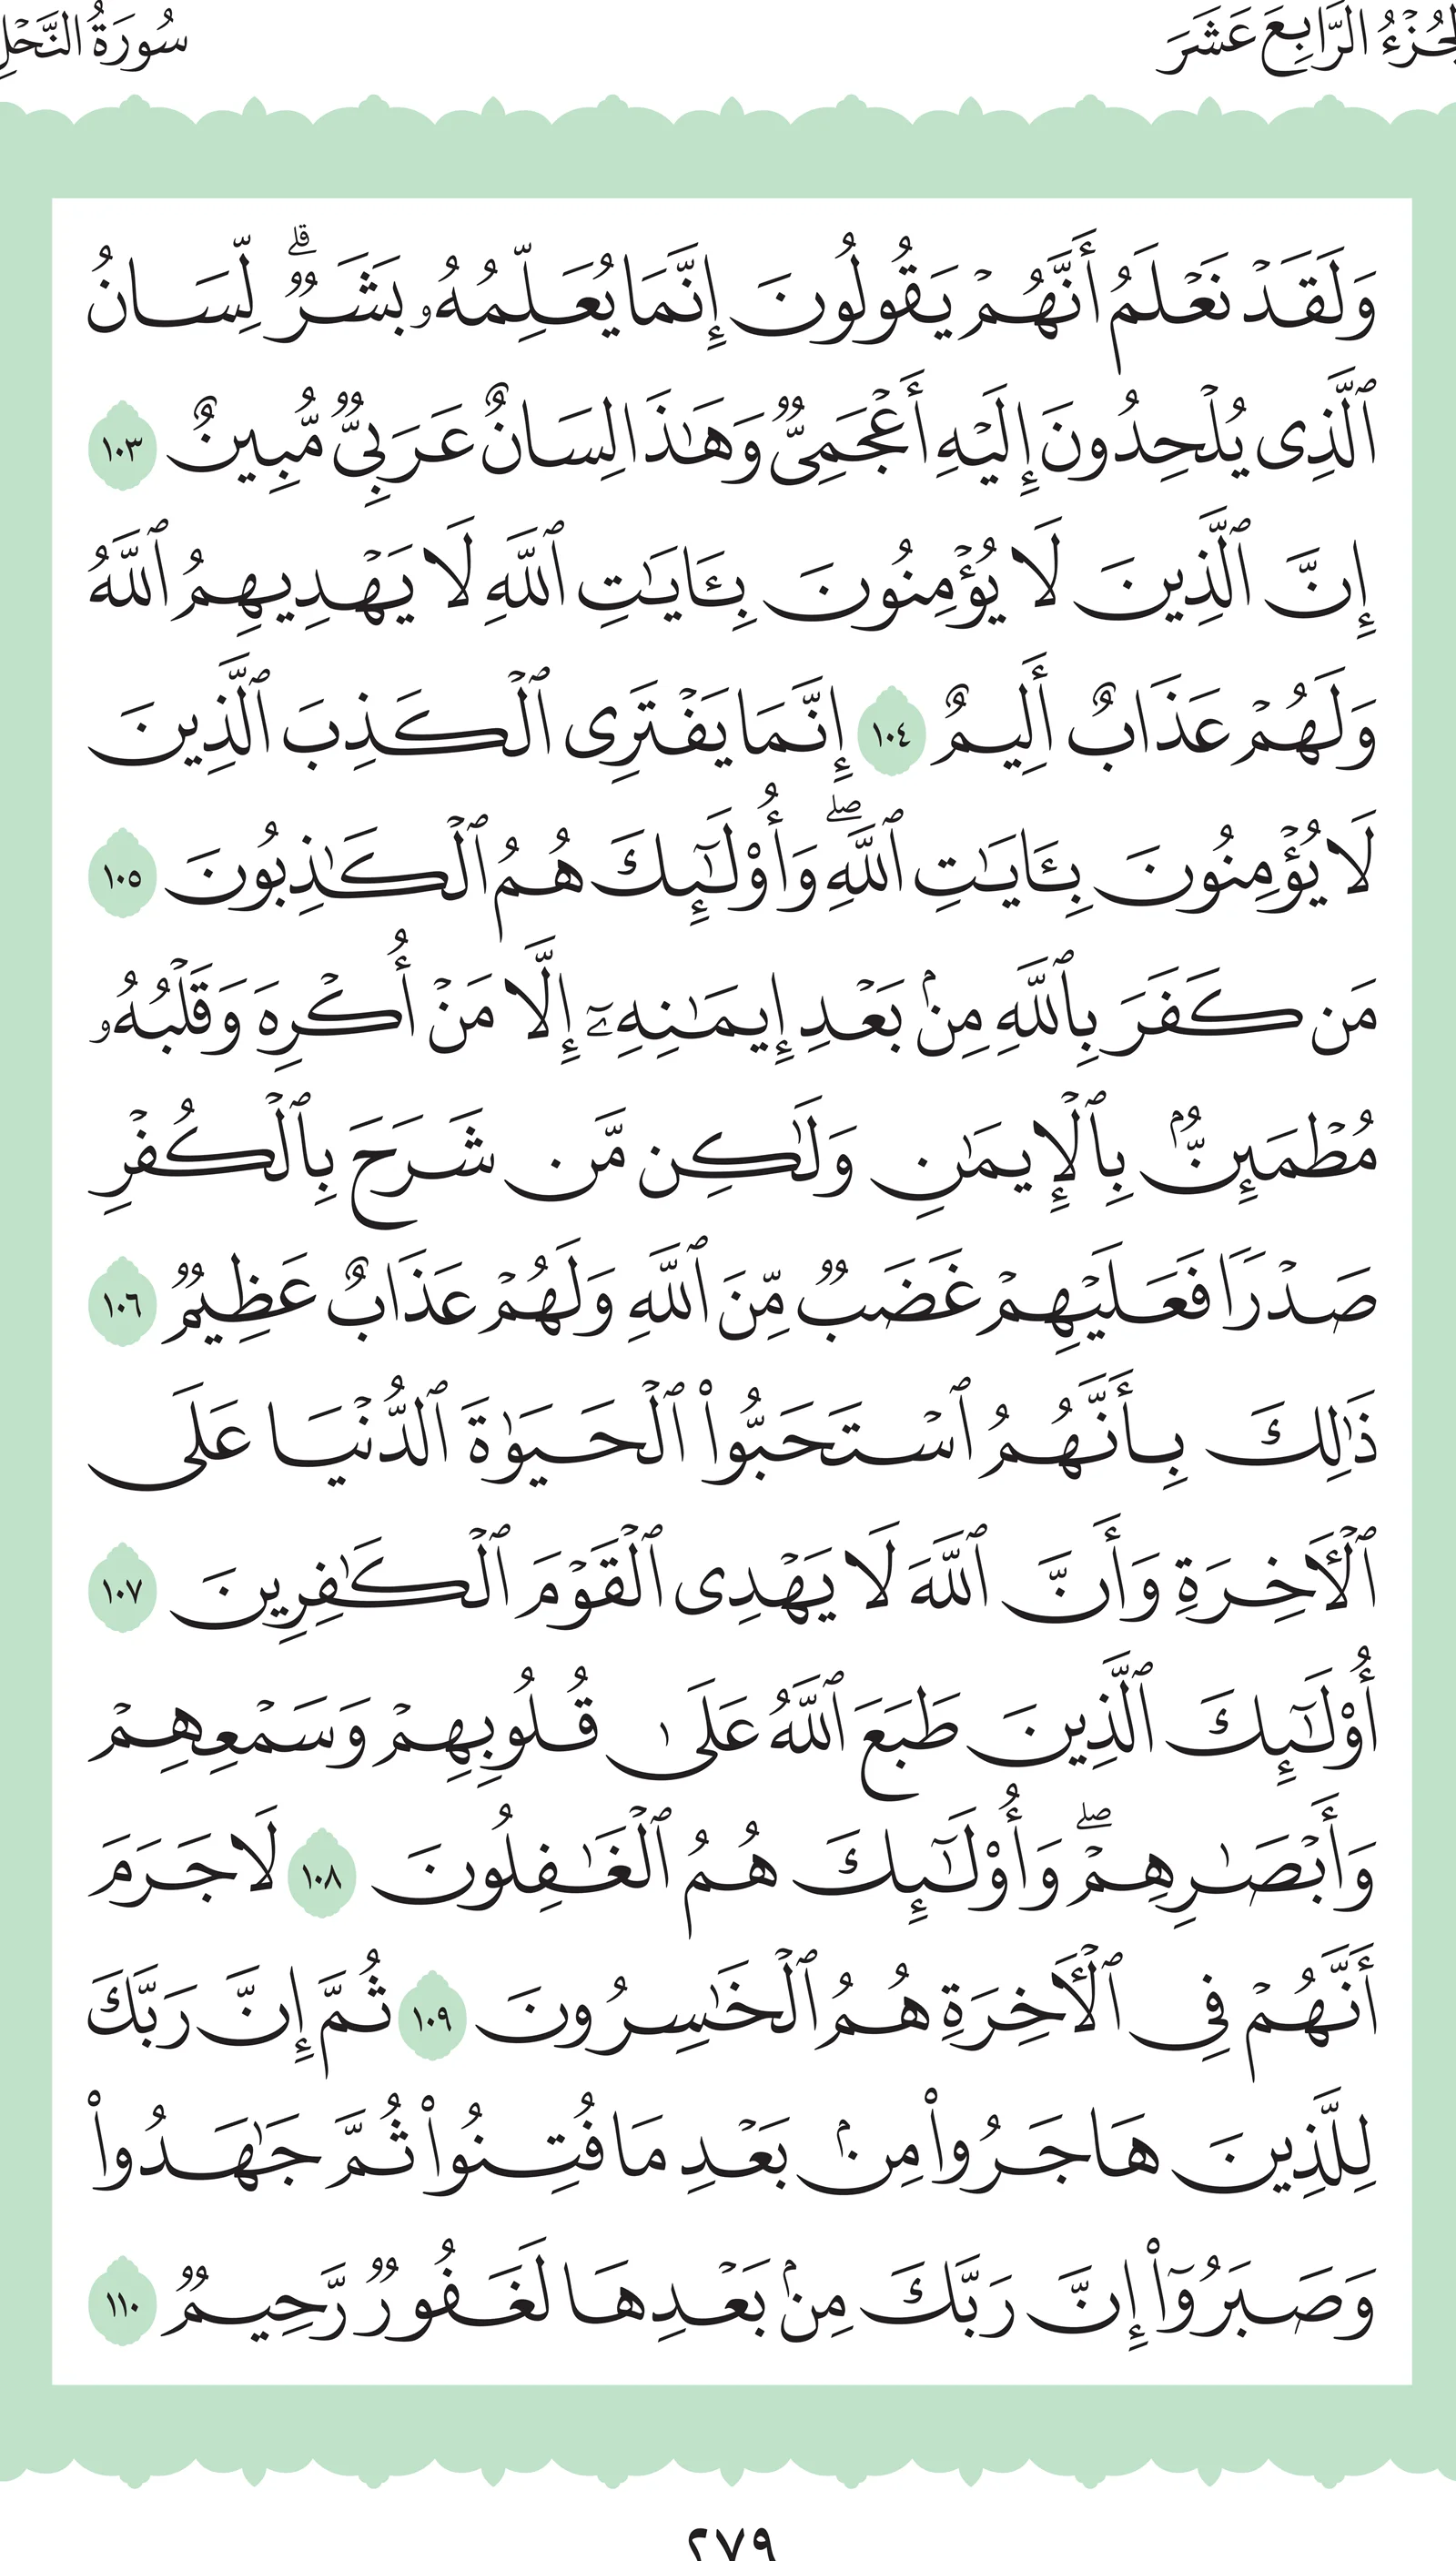 الجُزْءُ الرَّابِعَ عَشَرَ
سُورَةُ النَّحْلِ
وَلَقَدْ نَعْلَمُ أَنَّهُمْ يَقُولُونَ إِنَّمَا يُعَلِّمُهُۥ بَشَرٌۗ لِّسَانُ
ٱلَّذِى يُلْحِدُونَ إِلَيْهِ أَعْجَمِىٌّ وَهَٰذَا لِسَانٌ عَرَبِىٌّ مُّبِينٌ ١٠٣
إِنَّ ٱلَّذِينَ لَا يُؤْمِنُونَ بِـَٔايَٰتِ ٱللَّهِ لَا يَهْدِيهِمُ ٱللَّهُ
وَلَهُمْ عَذَابٌ أَلِيمٌ ١٠٤ إِنَّمَا يَفْتَرِى ٱلْكَذِبَ ٱلَّذِينَ
لَا يُؤْمِنُونَ بِـَٔايَٰتِ ٱللَّهِۖ وَأُو۟لَٰٓئِكَ هُمُ ٱلْكَٰذِبُونَ ١٠٥
مَن كَفَرَ بِٱللَّهِ مِنۢ بَعْدِ إِيمَٰنِهِۦٓ إِلَّا مَنْ أُكْرِهَ وَقَلْبُهُۥ
مُطْمَئِنٌّۢ بِٱلْإِيمَٰنِ وَلَٰكِن مَّن شَرَحَ بِٱلْكُفْرِ
صَدْرًا فَعَلَيْهِمْ غَضَبٌ مِّنَ ٱللَّهِ وَلَهُمْ عَذَابٌ عَظِيمٌ ١٠٦
ذَٰلِكَ بِأَنَّهُمُ ٱسْتَحَبُّوا۟ ٱلْحَيَوٰةَ ٱلدُّنْيَا عَلَى
ٱلْـَٔاخِرَةِ وَأَنَّ ٱللَّهَ لَا يَهْدِى ٱلْقَوْمَ ٱلْكَٰفِرِينَ ١٠٧
أُو۟لَٰٓئِكَ ٱلَّذِينَ طَبَعَ ٱللَّهُ عَلَىٰ قُلُوبِهِمْ وَسَمْعِهِمْ
وَأَبْصَٰرِهِمْۖ وَأُو۟لَٰٓئِكَ هُمُ ٱلْغَٰفِلُونَ ١٠٨ لَا جَرَمَ
أَنَّهُمْ فِى ٱلْـَٔاخِرَةِ هُمُ ٱلْخَٰسِرُونَ ١٠٩ ثُمَّ إِنَّ رَبَّكَ
لِلَّذِينَ هَاجَرُوا۟ مِنۢ بَعْدِ مَا فُتِنُوا۟ ثُمَّ جَٰهَدُوا۟
وَصَبَرُوٓا۟ إِنَّ رَبَّكَ مِنۢ بَعْدِهَا لَغَفُورٌ رَّحِيمٌ ١١٠
٢٧٩